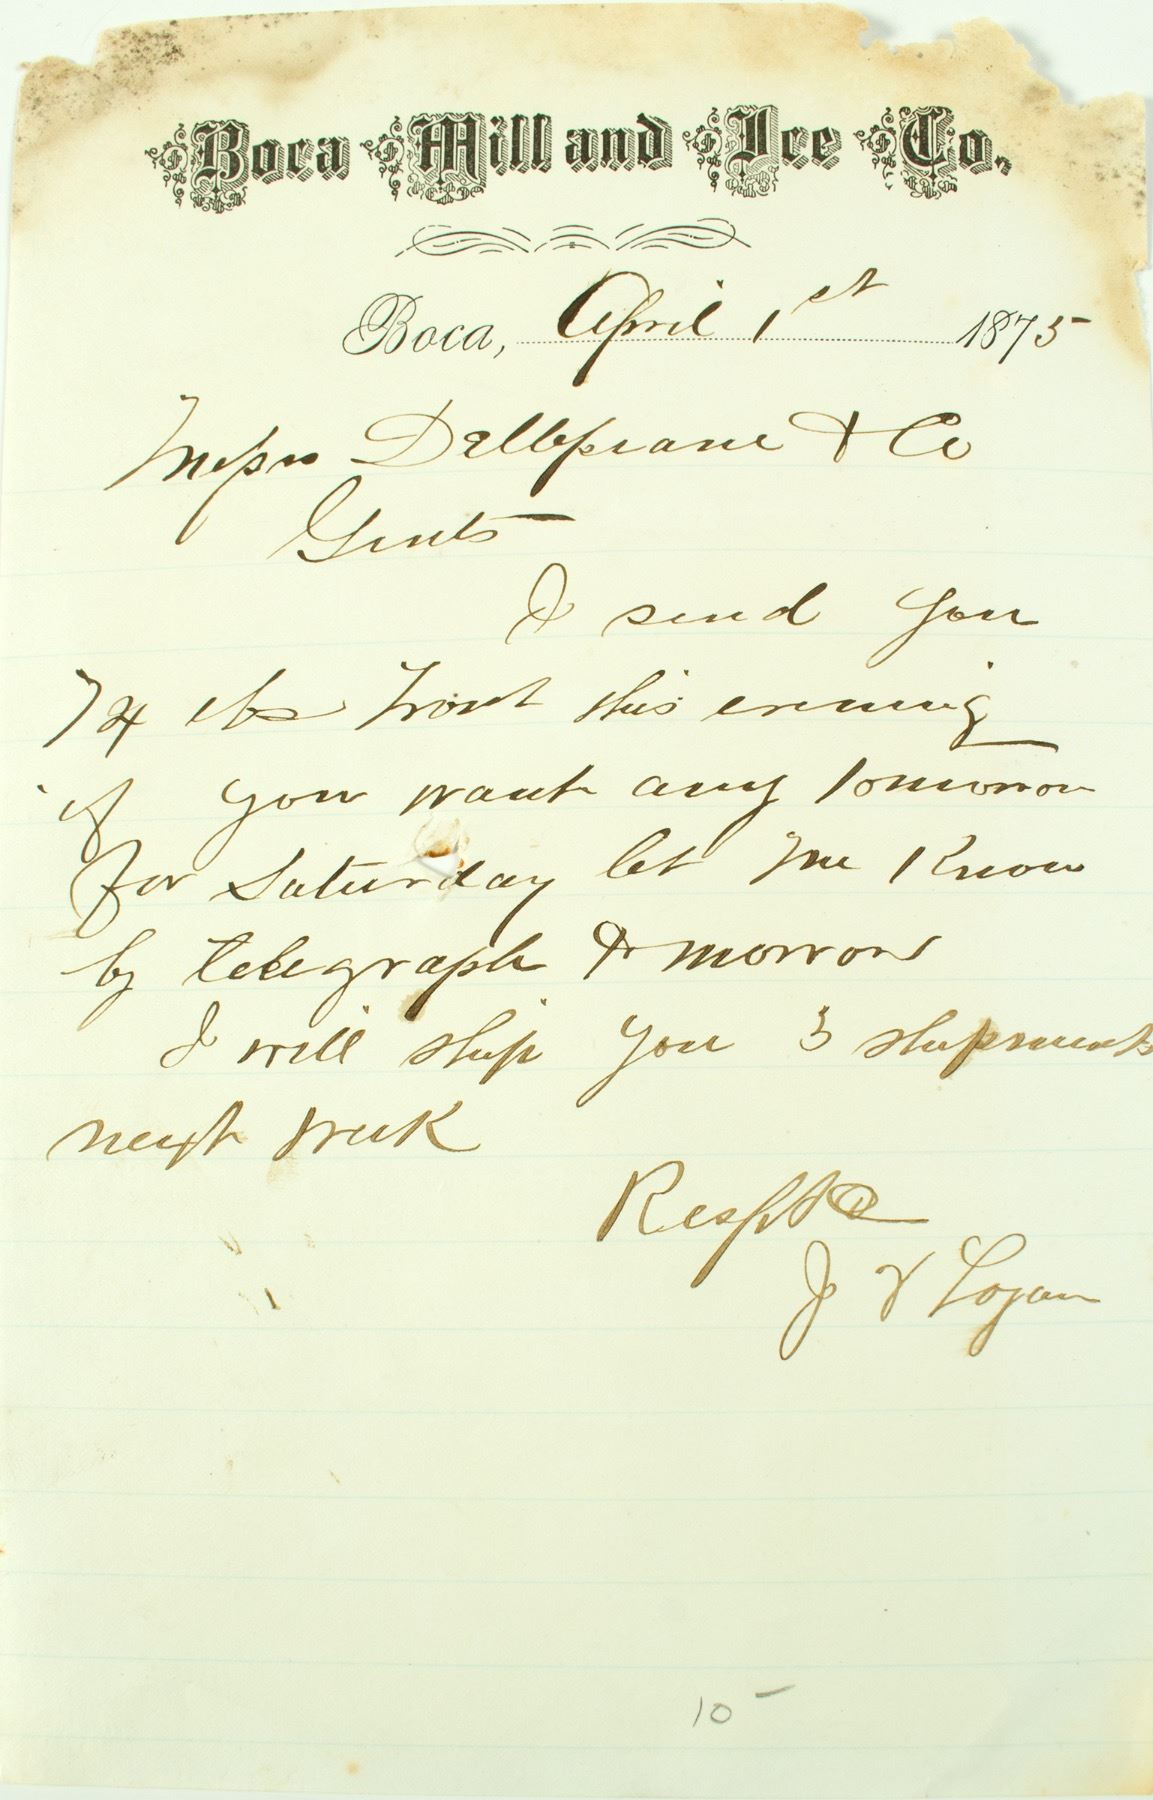 Boca Mill and Ice Co.,
Boca, April 1st 1875
Messrs Dellepiane & Co
Gents
I send you
74 lbs Trout this evening
if you want any tomorrow
For Saturday let me Know
by telegraph to morrow
I will ship you 3 shipments
next week
Respt
J V Logan
10-